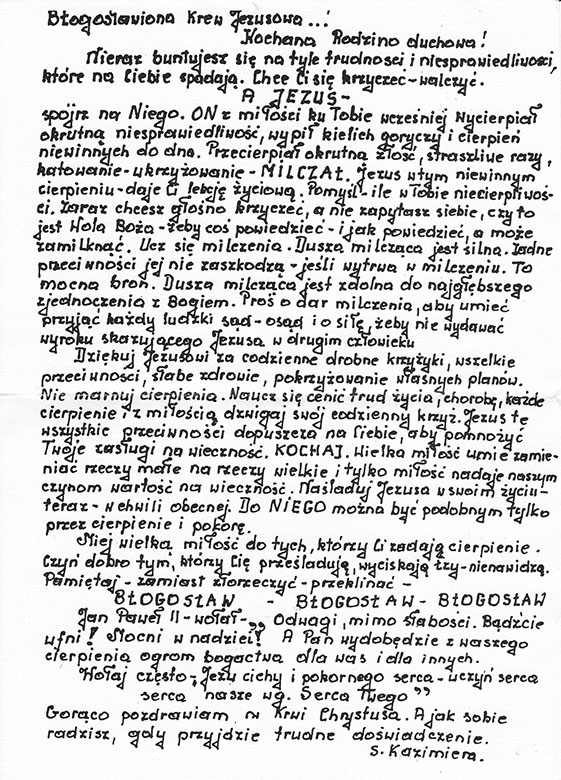 Błogosławiona Krew Jezusowa...!
Kochana Rodzino duchowa!
Nieraz buntujesz się na tyle trudności i niesprawiedliwości,
które na Ciebie spadają. Chce Ci się krzyczeć-walczyć.
A JEZUS-
spójrz na Niego. ON z miłości ku Tobie wcześniej wycierpiał
okrutną niesprawiedliwość, wypił kielich goryczy i cierpień
niewinnych do dna. Przecierpiał okrutną złość, straszliwe razy,
katowanie-ukrzyżowanie-MILCZAŁ. Jezus wtym niewinnym
cierpieniu-daje Ci lekcję życiową. Pomyśl-ile w Tobie niecierpliwoś-
ci. Zaraz chcesz głośno krzyczeć, a nie zapytasz siebie, czy to
jest Wola Boża-żeby coś powiedzieć-i jak powiedzieć, a może
zamilknąć. Ucz się milczenia. Dusza milcząca jest silna. Żadne
przeciwności jej nie zaszkodzą-jeśli wytrwa w milczeniu. To
mocna broń. Dusza milcząca jest zdolna do najgłębszego
zjednoczenia z Bogiem. Proś o dar milczenia, aby umieć
przyjąć każdy ludzki sąd-osąd i o siłę, żeby nie wydawać
wyroku skazującego Jezusa w drugim człowieku
Dziękuj Jezusowi za codzienne drobne krzyżyki, wszelkie
przeciwności, słabe zdrowie, pokrzyżowanie własnych planów.
Nie marnuj cierpienia. Naucz się cenić trud życia, chorobę, każde
cierpienie i z miłością dźwigaj swój codzienny krzyż. Jezus te
wszystkie przeciwności dopuszcza na Ciebie, aby pomnożyć
Twoje zasługi na wieczność. KOCHAJ. Wielka miłość umie zamie-
niać rzeczy małe na rzeczy wielkie i tylko miłość nadaje naszym
czynom wartość na wieczność. Naśladuj Jezusa w swoim życiu-
teraz-w chwili obecnej. Do NIEGO można być podobnym tylko
przez cierpienie i pokorę.
Miej wielką miłość do tych, którzy Ci zadają cierpienie.
Czyń dobro tym, którzy Cię prześladują, wyciskają łzy-nienawidzą.
Pamiętaj-zamiast złorzeczyć-przeklinać-
BŁOGOSŁAW - BŁOGOSŁAW-BŁOGOSŁAW
Jan Paweł II-wołał-„Odwagi, mimo słabości. Bądźcie
ufni! Mocni w nadziei! A Pan wydobędzie z waszego
cierpienia ogrom bogactwa dla was i dla innych.
Wołaj często „Jezu cichy i pokornego serca-uczyń serca
serca nasze wg. Serca Twego”
Gorąco pozdrawiam w Krwi Chrystusa. A jak sobie
radzisz, gdy przyjdzie trudne doświadczenie.
S. Kazimiera.